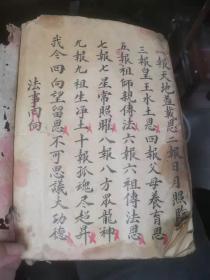 一報天地蓋載恩二報日月照臨
三報皇王水土恩四報父母養育恩
五報祖師親傳法六報六祖傳法恩
七報七星常照臨八報八方眾龍神
九報九祖生淨土十報孤魂尽超昇
我今回向望留恩不可思議大功德
法事回向